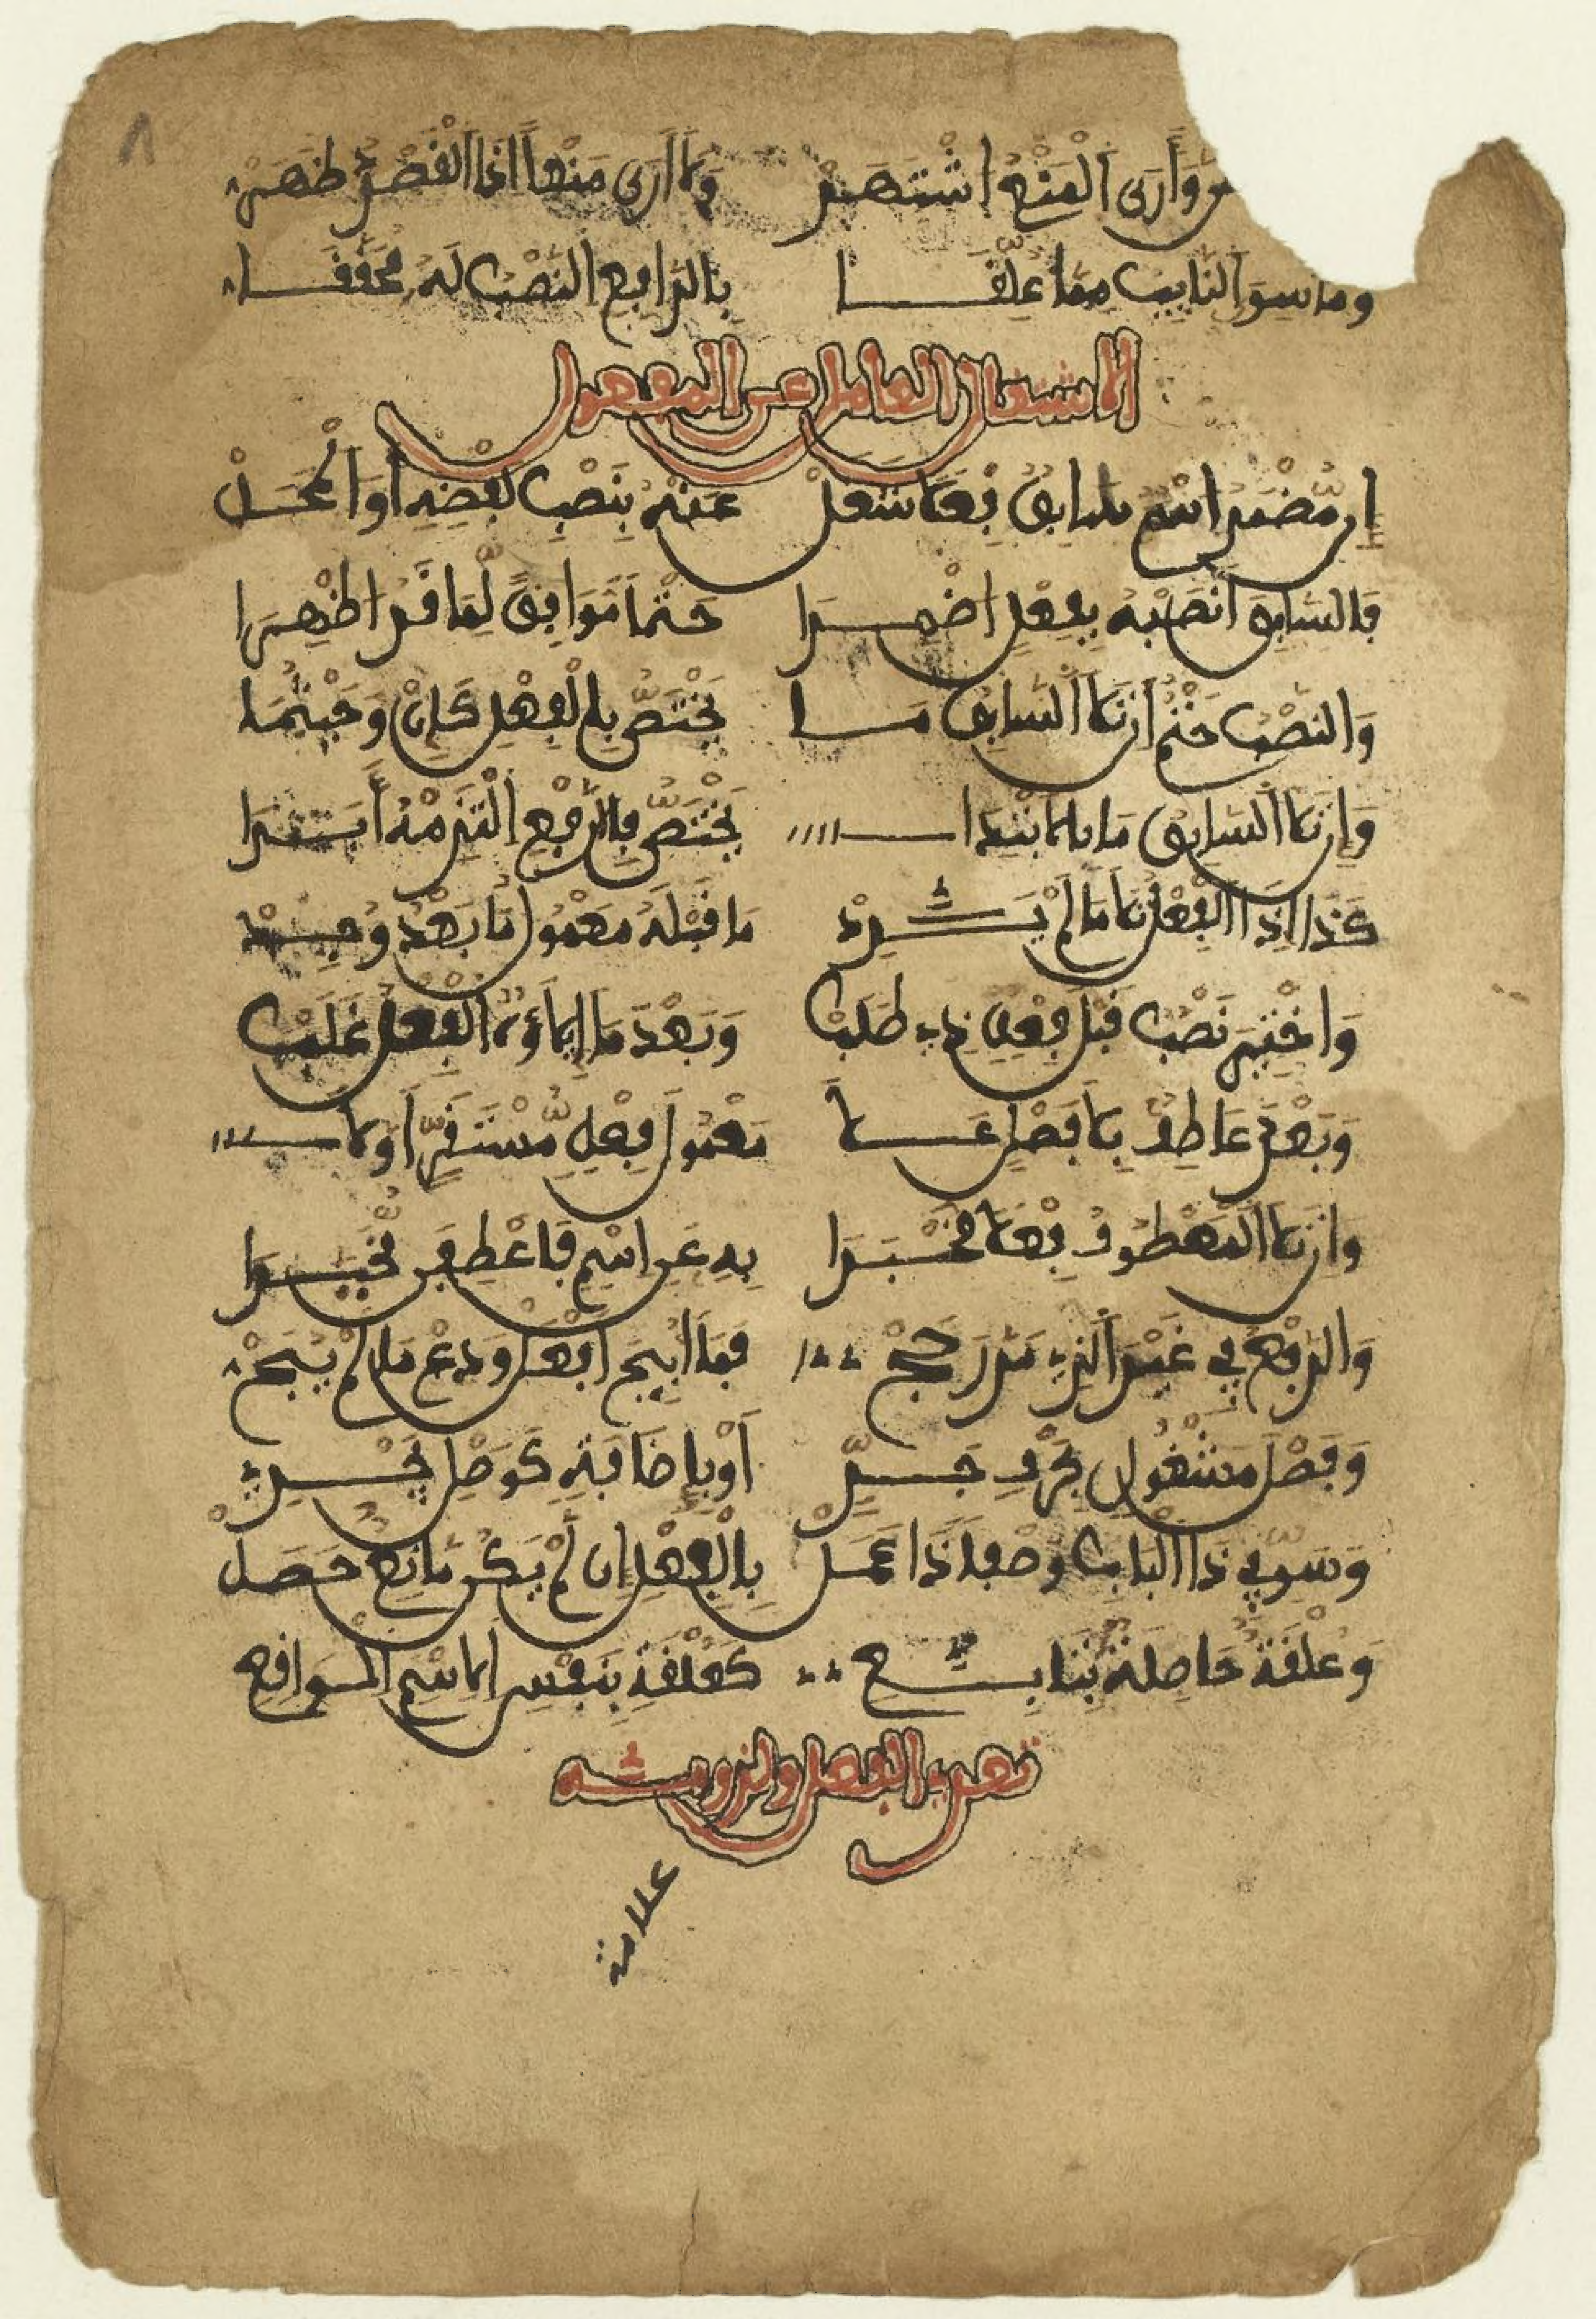 وَأَرَى الْمَنْعُ اشْتَهَرْ وَلَا أَرَى مَنْعاً اذَا الْقَصْدُ ظَهَرْ
وما سِوَى النَّايِبِ مِمَّا عُلِّقَا بِالرَّافِعِ النَّصْبُ لَهُ مُحَقَّقَا
الاشتغال العامل عن المفعول
ان مُّضْمَرُ اسْمٍ سَابِقٍ فِعْلا شَغَلْ عَنْهُ بِنَصْبِ لَفْظِهِ أَوِ الْمَحَلْ
فَالسَّابِقَ انْصِبْهُ بِفِعْلٍ اضْمِرَا حَتْماً مُّوَافِقٍ لِّمَا قَدُ اظْهِرَا
وَالنَّصْبُ حَتْمٌ ان تَلَا السَّابِقُ مَا يَخْتَصُّ بِالْفِعْلِ كَإِنْ وَحَيْثُمَا
وَإِن تَلَا السَّابِقُ مَا بالابْتِدَا يَخْتَصُّ فَالرَّفْعَ الْتَزِمْهُ أَبَدَا
كَذَا إِذَا الْفِعْلُ تَلَا مَا لَمْ يَرِدْ مَا قَبْلَهُ مَعْمُولَ مَا بَعْدُ وُجِدْ
وَاخْتِيرَ نَصْبٌ قَبْلَ فِعْلٍ ذِي طَلَبْ وَبَعْدَ مَا إِيلَاؤُهُ الْفِعْلَ غَلَبْ
وَبَعْدَ عَاطِفٍ بِلَا فَصْلٍ عَلَى مَعْمُولِ فِعْلٍ مُّسْتَقِرٍّ أَوَّلَا
وَان تَلَا الْمَعْطُوفُ فِعْلا مُخْبَرَا بِهِ عَنِ اسْمٍ فَاعْطِفَن مُّخَيَّرَا
وَالرَّفْعُ فِي غَيْرِ الَّذِي مَرَّ رَجَحْ فَمَا أُبِيحَ افْعَلْ وَدَعْ مَا لَمْ يُبَحْ
وَفَصْلُ مَشْغُولٍ بِحَرْفِ جَرِّ أَوْ بِإِضَافَةٍ كَوَصْلٍ يَجْرِي
وَسَوِّ فِي ذَا الْبَابِ وَصْفاً ذَا عَمَلْ بِالْفِعْلِ إِن لَّمْ يَكُ مَانِعٌ حَصَلْ
وَعُلْقَةٌ حَاصِلَةٌ بِتَابِعِ كَعُلْقَةٍ بِنَفْسِ الِاسْمِ الْوَاقِعِ
تعدي الفعل ولزومه
علامة